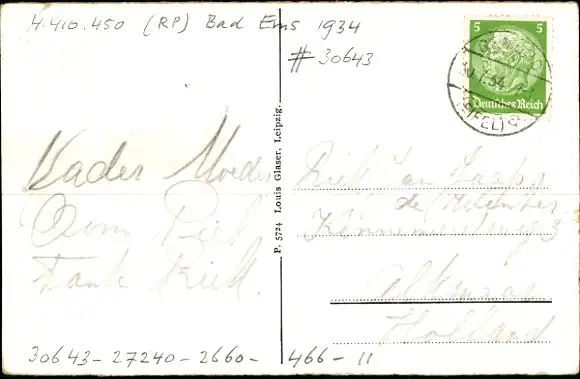 4.410.450 (RP) Bad Ems 1934
# 30643
5 5
30.7.34
(EIFEL)
Deutsches Reich
P. 5724 Louis Glaser, Leipzig.
Vader Moeder
Oom Piet
Tante Riek.
de
3
Alkmaar
Holland
30643-27240-2660-466-11